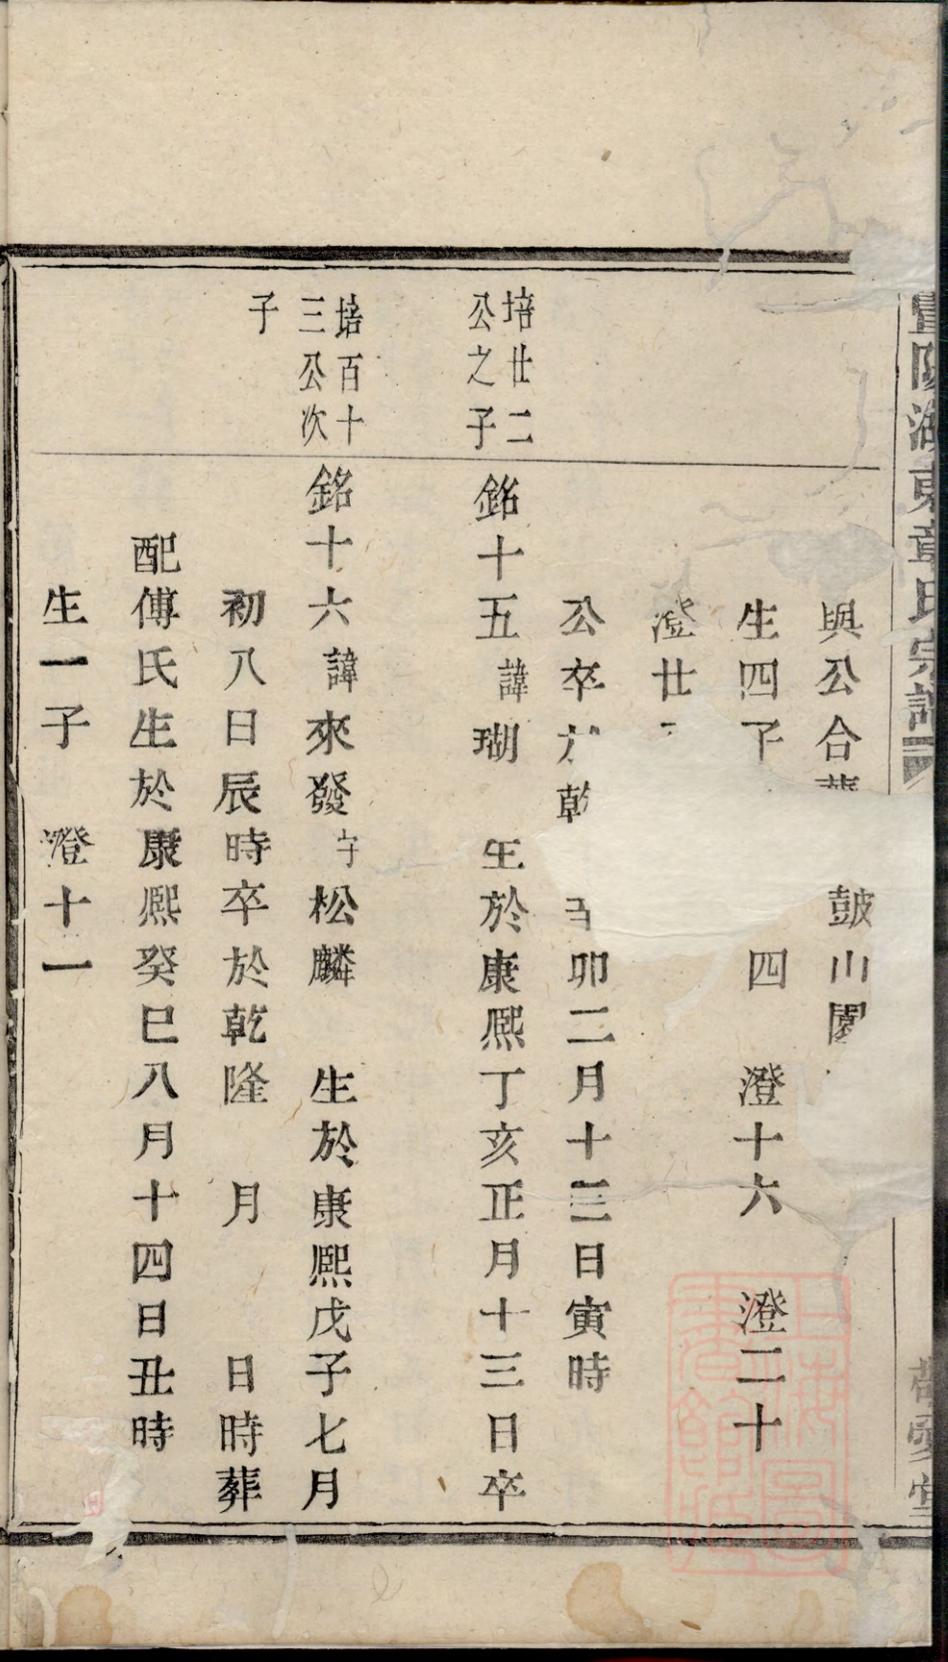 暨陽湖東章氏宗譜
與公合葬 鼓山園
生四子 四 澄十六 澄二十
澄廿
公卒於乾 辛卯二月十三日寅時
培廿二
公之子
銘十五 諱瑚 生於康熙丁亥正月十三日卒
培百十
三公次
子
銘十六 諱來發 字松麟 生於康熙戊子七月
初八日辰時卒於乾隆 月 日時葬
配傅氏生於康熙癸巳八月十四日丑時
生一子 澄十一